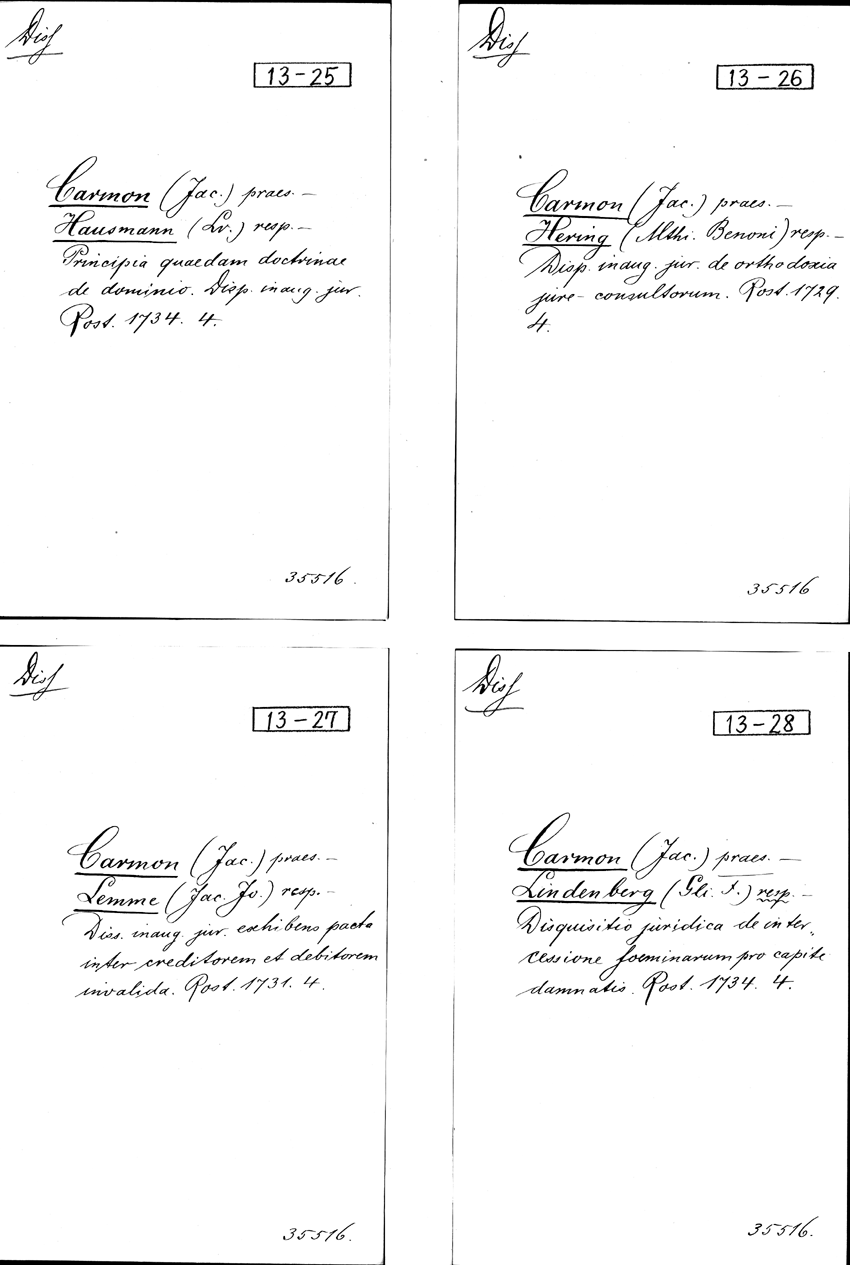 Diss
13-25
Carmon (Jac.) praes. —
Hausmann (Lv.) resp. —
Principia quaedam doctrinae
de dominio. Disp. inaug. jur.
Rost. 1734. 4.
35516.
Diss
13-26
Carmon (Jac.) praes. —
Hering (Mthi. Benoni) resp. —
Disp. inaug. jur. de orthodoxia
jure-consultorum. Rost. 1729.
4.
35516
Diss
13-27
Carmon (Jac.) praes. —
Lemme (Jac. Jo.) resp. —
Diss. inaug. jur. exhibens pacta
inter creditorem et debitorem
invalida. Rost. 1731. 4.
35516.
Diss
13-28
Carmon (Jac.) praes. —
Lindenberg (Gli. ) resp. —
Disquisitio juridica de inter-
cessione foeminarum pro capite
damnatis. Rost. 1734. 4.
35516.